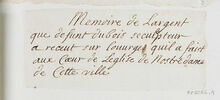 Memoire de Largent
que defunt dubois seculpteur
a receut sur Louurges quil a fait
aux Cœur de Leglise de Nostre dame
de Cette ville